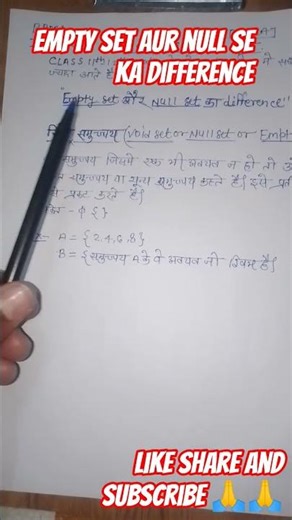 EMPTY SET AUR NULL SE
KA DIFFERENCE
CLASS 11th
"Empty set और NULL set का difference"
समुच्चय (void set or Null set or Empt
समुच्चय जिसमें एक भी अवयव न हो तो
समुच्चय या शून्य समुच्चय कहते हैं। इसे
करते हैं।
- ϕ { }
A = {2,4,6,8}
B = {समुच्चय A के वे अवयव जो विषम हैं}
LIKE SHARE AND
SUBSCRIBE 🙏🙏